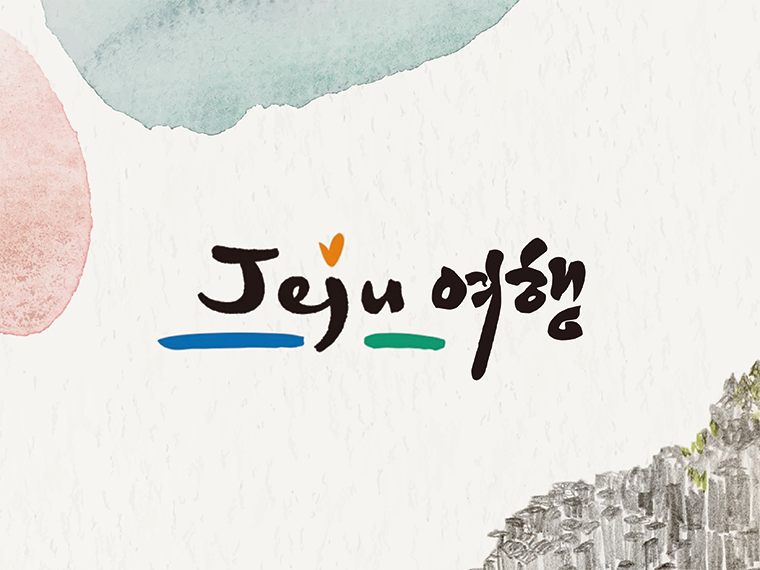 Jeju 여행